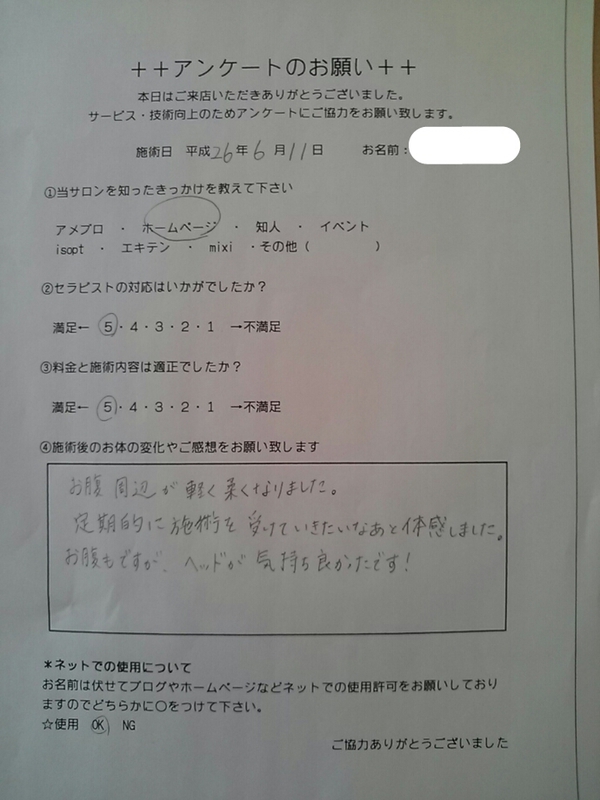 ++アンケートのお願い++
本日はご来店いただきありがとうございました。
サービス・技術向上のためアンケートにご協力をお願い致します。
施術日 平成26年6月11日 お名前：
①当サロンを知ったきっかけを教えて下さい
アメプロ ・ ホームページ ・ 知人 ・ イベント
isopt ・ エキテン ・ mixi ・その他（ ）
②セラピストの対応はいかがでしたか？
満足← 5・4・3・2・1 →不満足
③料金と施術内容は適正でしたか？
満足← 5・4・3・2・1 →不満足
④施術後のお体の変化やご感想をお願い致します
お腹周辺が軽く柔くなりました。
定期的に施術を受けていきたいなあと体感しました。
お腹もですが、ヘッドが気持ち良かったです！
＊ネットでの使用について
お名前は伏せてブログやホームページなどネットでの使用許可をお願いしており
ますのでどちらかに○をつけて下さい。
☆使用 OK NG
ご協力ありがとうございました